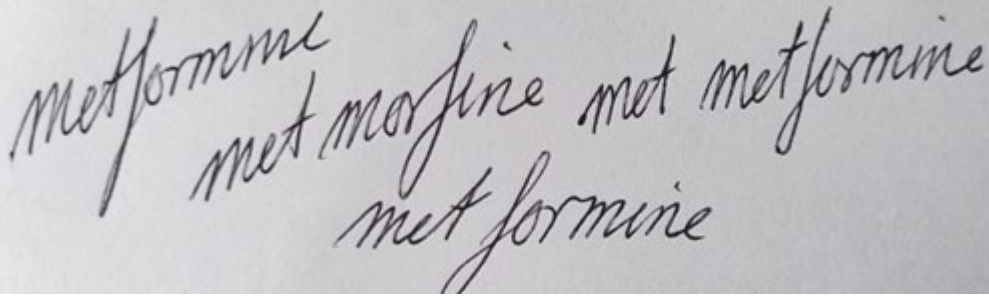 metformine
met morfine met metformine
met formine